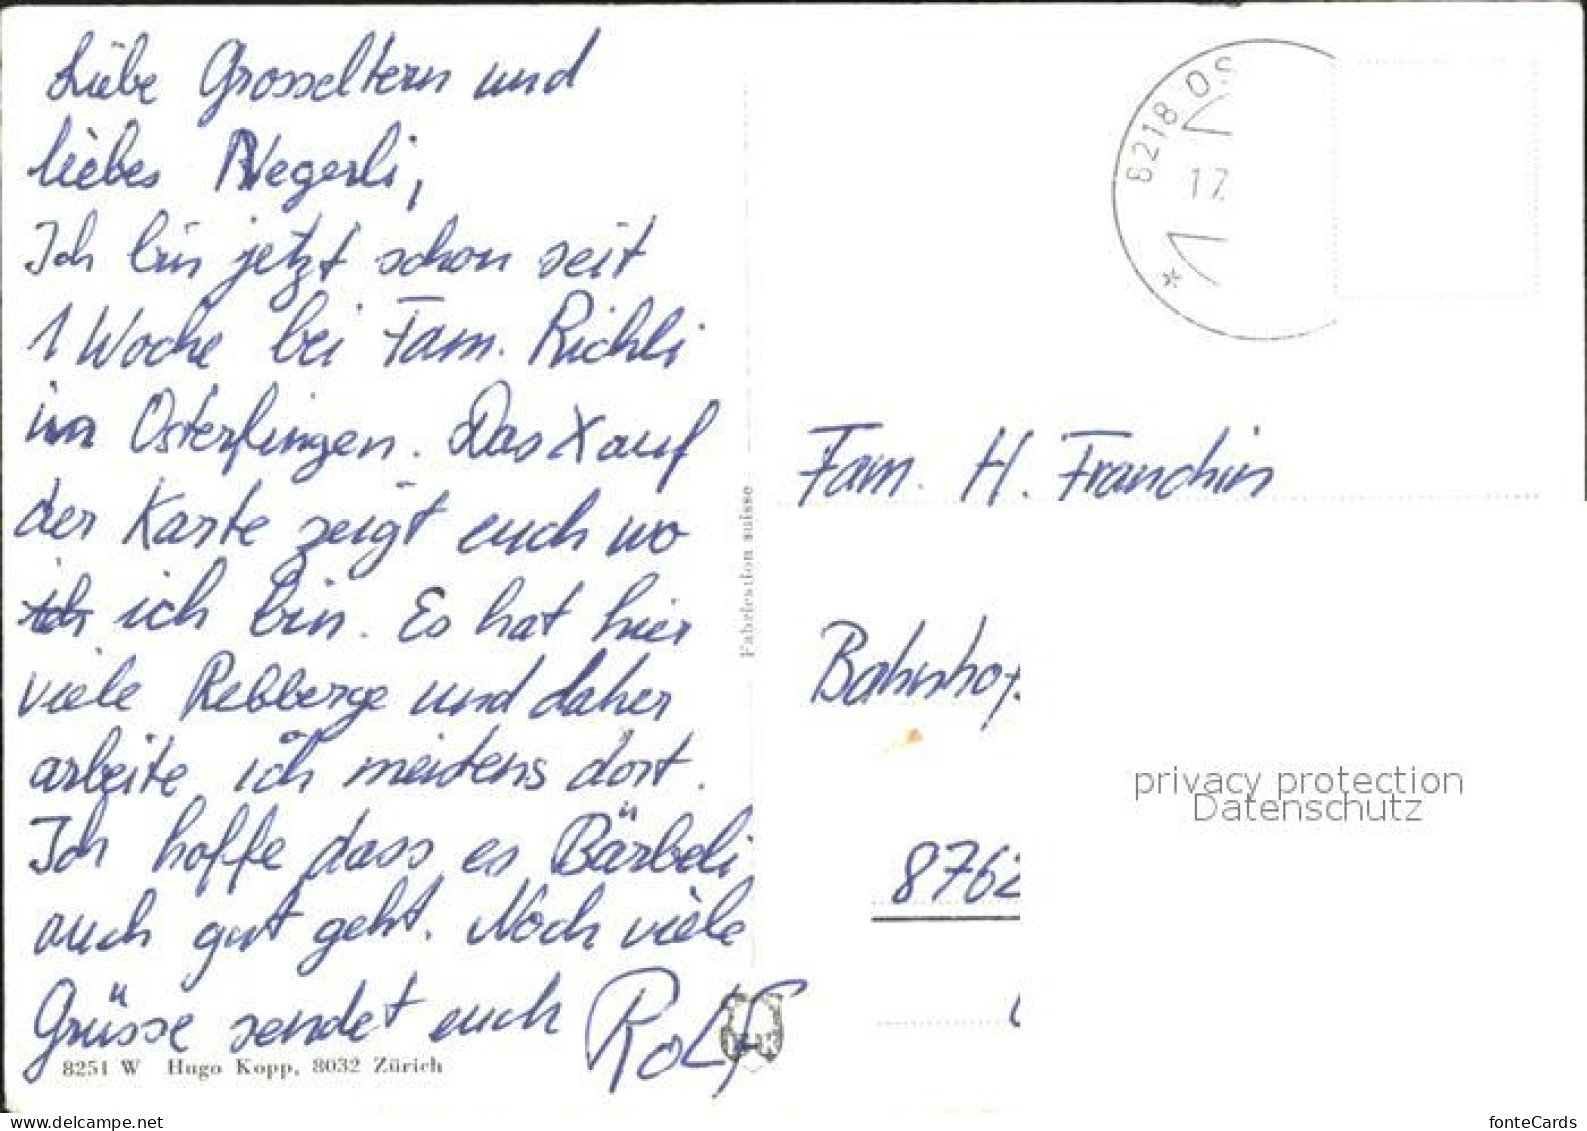 Liebe Grosseltern und
liebes Negerli,
Ich bin jetzt schon seit
1 Woche bei Fam. Richli
in Osterfingen. Das X auf
der Karte zeigt euch wo
ich ich bin. Es hat hier
viele Rebberge und daher
arbeite ich meistens dort.
Ich hoffe dass es Bärbeli
auch gut geht. Noch viele
Grüsse sendet euch Rolf
8251 W Hugo Kopp, 8032 Zürich
Fabrication suisse
8218 OS
17.
Fam. H. Franchin
Bahnhof
8762
privacy protection
Datenschutz
www.delcampe.net
fonteCards